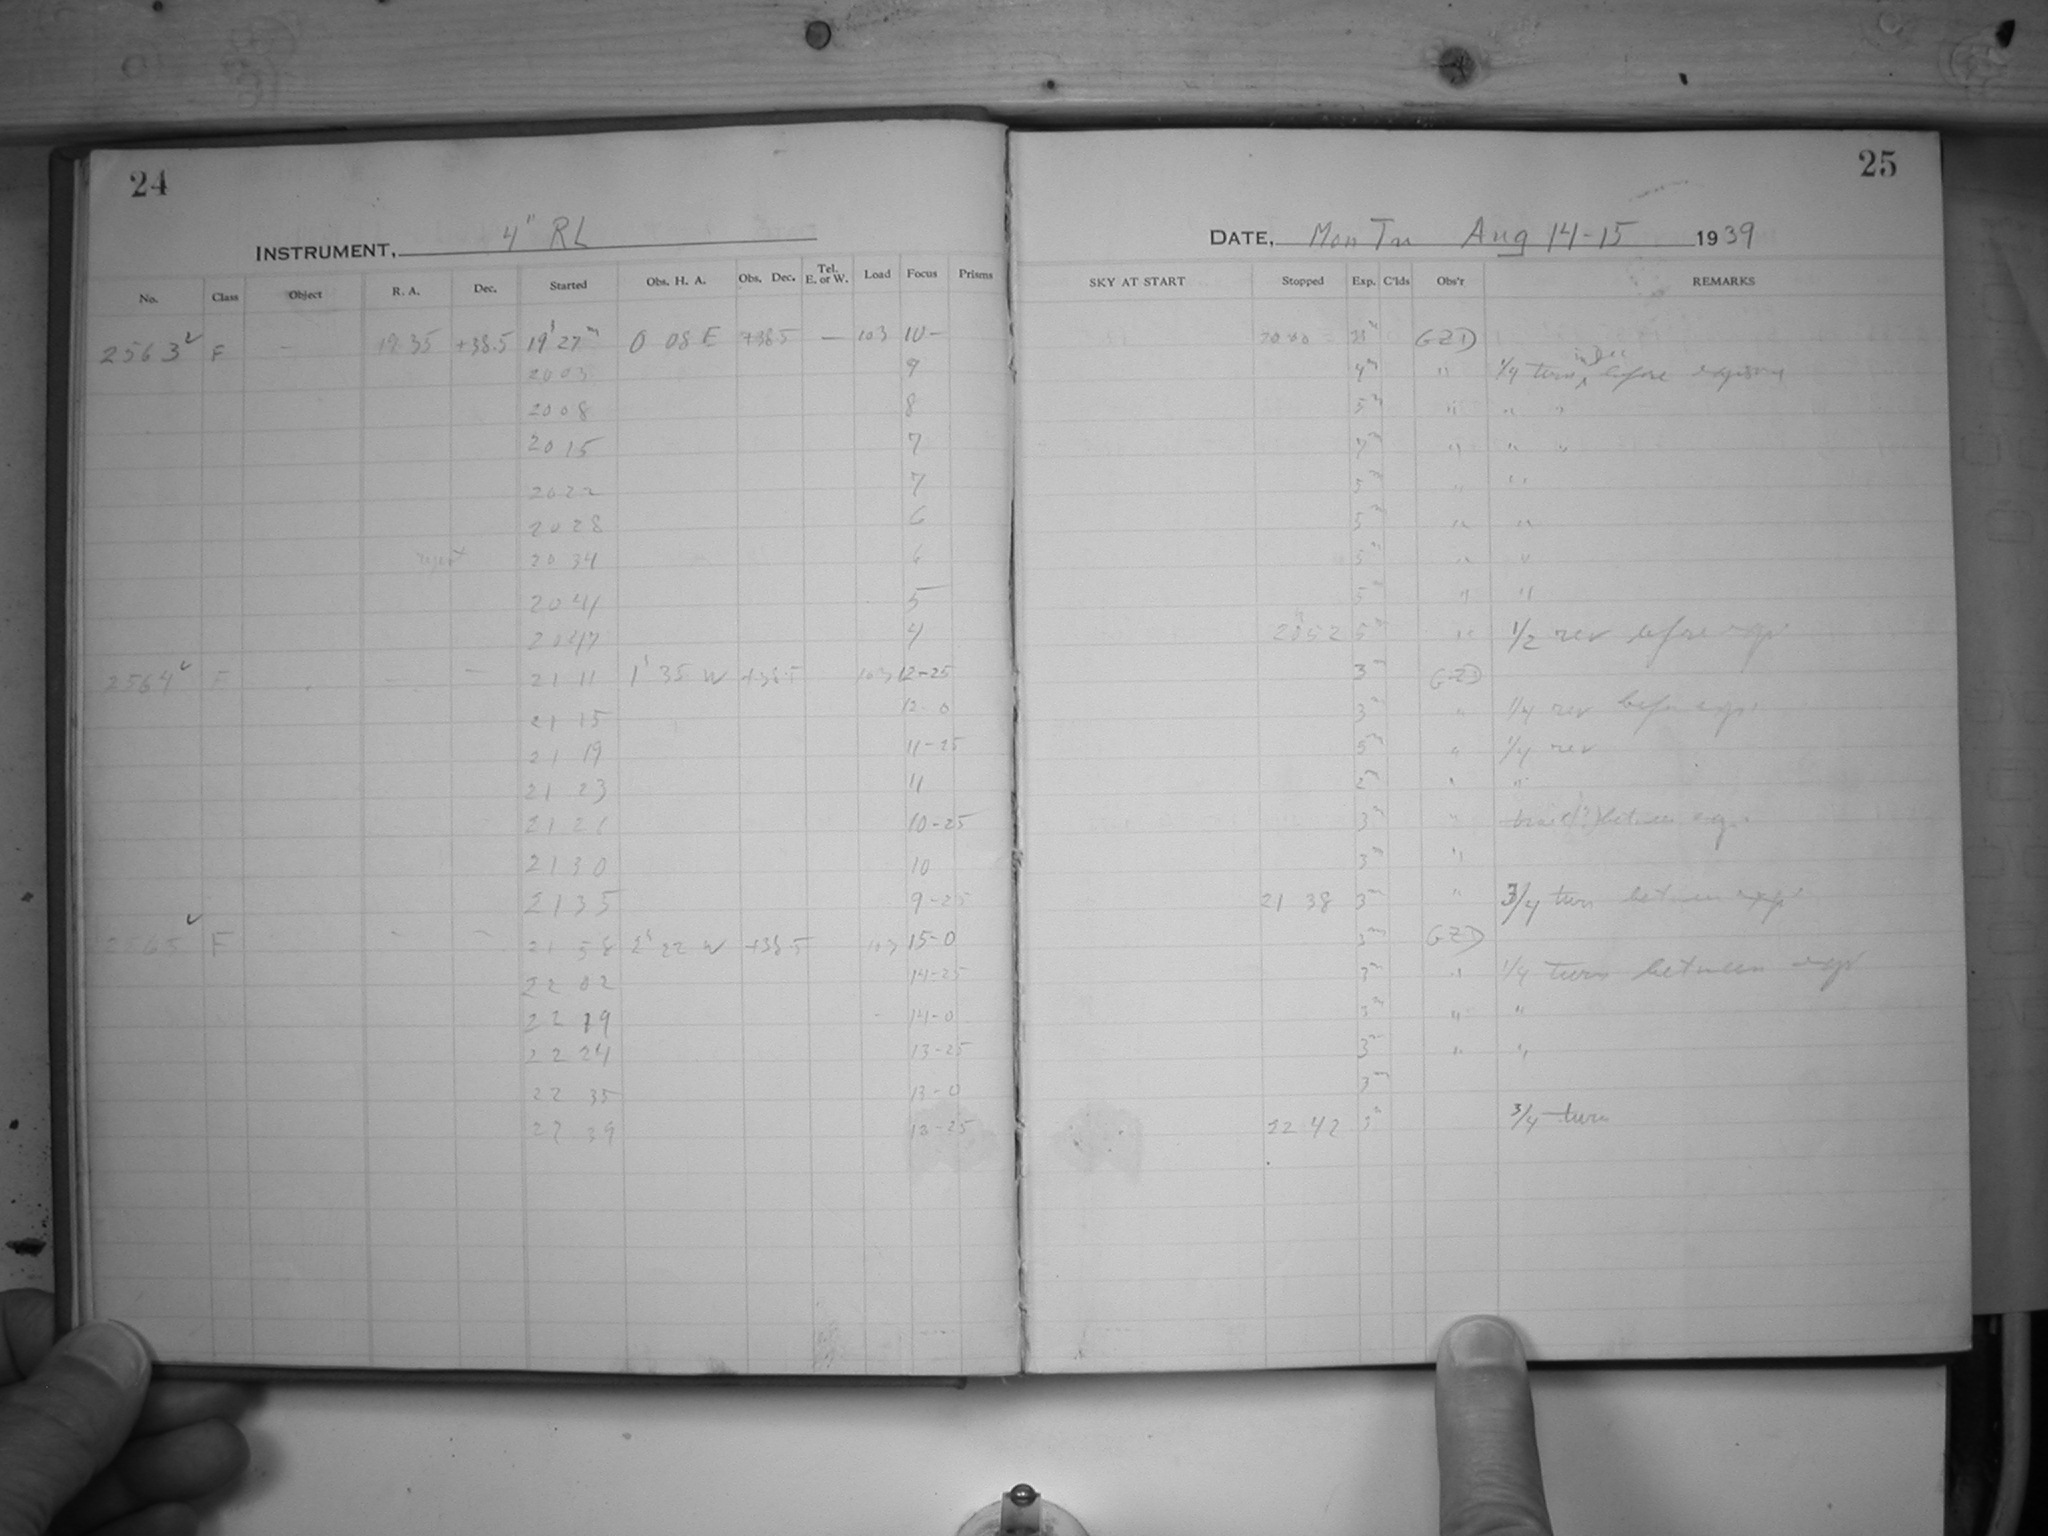 24
INSTRUMENT, 4" RL
No. Class Object R. A. Dec. Started Obs. H. A. Obs. Dec. Tel. E. or W. Load Focus Prisms
2563 F — 19 35 +38.5 19h 27m 0 08 E +38.5 — 103 10-
2003 9
2008 8
2015 7
2022 7
2028 6
2034 6
2041 5
2047 4
2564 F — — 21 11 1h 35 W +38.5 103 12-25
21 15 12-0
21 19 11-25
21 23 11
21 26 10-25
2130 10
2135 9-25
2565 F - - 21 58 2h 22 W +38.5 103 15-0
22 02 14-25
22 19 14-0
22 24 13-25
22 35 13-0
22 39
25
DATE, Mon Tu Aug 14-15 1939
SKY AT START Stopped Exp. C'lds Obs'r REMARKS
GZD
4m " 1/4 turn before exposure
5m " " "
7m " " "
5m " "
5m " "
5m " "
5m " "
2052 5m " 1/2 rev before exp.
3m GZD
3m " 1/4 rev before exp.
5m " 1/4 rev
2m " "
3m " between exp.
3m "
21 38 3m " 3/4 turn between exp.
3m GZD
3m " 1/4 turn between exp
3m " "
3m " "
3m
22 42 3m 3/4 turn